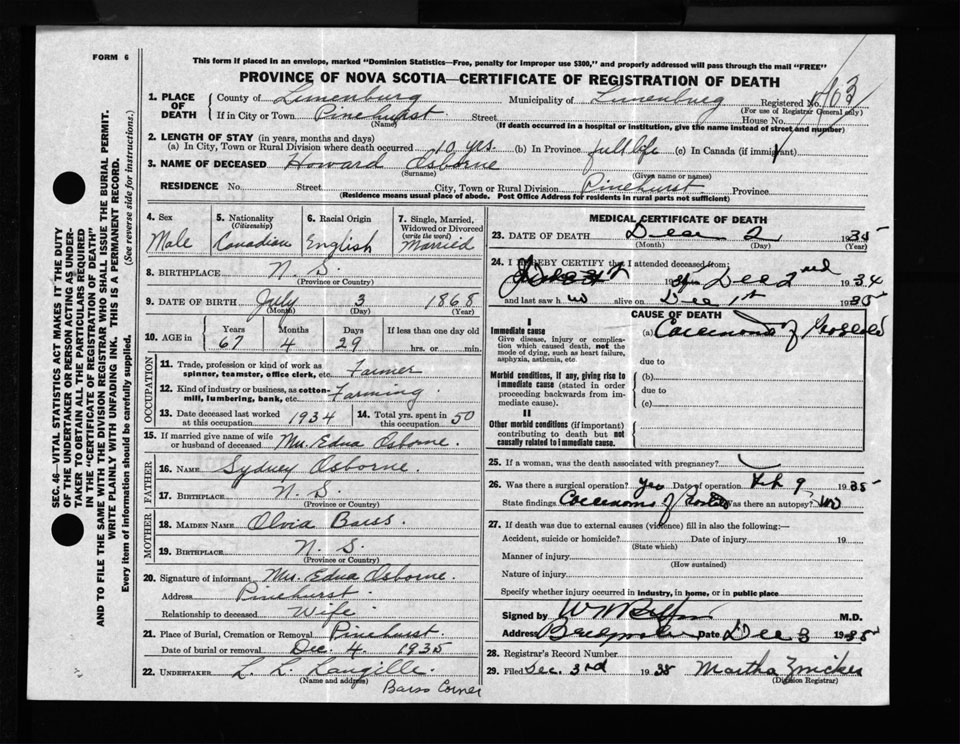 FORM 6
This form if placed in an envelope, marked "Dominion Statistics—Free, penalty for improper use $300," and properly addressed will pass through the mail "FREE"
PROVINCE OF NOVA SCOTIA—CERTIFICATE OF REGISTRATION OF DEATH
1. PLACE OF DEATH
County of Lunenburg Municipality of Lunenburg Registered No. 403
(For use of Registrar General only)
If in City or Town Pinehurst Street House No.
(Name) (If death occurred in a hospital or institution, give the name instead of street and number)
2. LENGTH OF STAY (in years, months and days)
(a) In City, Town or Rural Division where death occurred 10 yrs. (b) In Province full life (c) In Canada (if immigrant)
3. NAME OF DECEASED Howard Osborne
(Surname) (Given name or names)
RESIDENCE No. Street City, Town or Rural Division Pinehurst. Province
(Residence means usual place of abode. Post Office Address for residents in rural parts not sufficient)
4. Sex Male
5. Nationality (Citizenship) Canadian
6. Racial Origin English
7. Single, Married, Widowed or Divorced (write the word) Married
8. BIRTHPLACE N. S.
(Province or Country)
9. DATE OF BIRTH July 3 1868
(Month) (Day) (Year)
10. AGE in Years 67 Months 4 Days 29 If less than one day old hrs. or min.
OCCUPATION
11. Trade, profession or kind of work as spinner, teamster, office clerk, etc. Farmer
12. Kind of industry or business, as cotton-mill, lumbering, bank, etc. Farming
13. Date deceased last worked at this occupation 1934
14. Total yrs. spent in this occupation 50
15. If married give name of wife or husband of deceased Mrs. Edna Osborne.
FATHER
16. NAME Sydney Osborne.
17. BIRTHPLACE N. S.
(Province or Country)
MOTHER
18. MAIDEN NAME Olvia Barss.
19. BIRTHPLACE N. S.
(Province or Country)
20. Signature of informant Mrs. Edna Osborne.
Address Pinehurst.
Relationship to deceased Wife.
21. Place of Burial, Cremation or Removal Pinehurst.
Date of burial or removal Dec. 4. 1935
22. UNDERTAKER L. L. Langille.
(Name and address)
Barss Corner
MEDICAL CERTIFICATE OF DEATH
23. DATE OF DEATH 2 1935
(Month) (Day) (Year)
24. I HEREBY CERTIFY that I attended deceased from:
Dec 2nd 1934
and last saw h alive on Dec 1st 1935
CAUSE OF DEATH
I
Immediate cause
Give disease, injury or complication which caused death, not the mode of dying, such as heart failure, asphyxia, asthenia, etc.
(a) of
due to
Morbid conditions, if any, giving rise to immediate cause (stated in order proceeding backwards from immediate cause).
(b)
due to
(c)
II
Other morbid conditions (if important) contributing to death but not causally related to immediate cause.
25. If a woman, was the death associated with pregnancy?
26. Was there a surgical operation? yes Date of operation 9 1935
State findings of Was there an autopsy? no
27. If death was due to external causes (violence) fill in also the following:—
Accident, suicide or homicide? Date of injury 19
(State which)
Manner of injury
(How sustained)
Nature of injury
Specify whether injury occurred in industry, in home, or in public place
Signed by M.D.
Address Date Dec 3 1935
28. Registrar's Record Number
29. Filed Dec. 3rd 1935 Martha Zwicker
(Division Registrar)
SEC. 46—VITAL STATISTICS ACT MAKES IT THE DUTY
OF THE UNDERTAKER OR PERSON ACTING AS UNDER-
TAKER TO OBTAIN ALL THE PARTICULARS REQUIRED
IN THE "CERTIFICATE OF REGISTRATION OF DEATH"
AND TO FILE THE SAME WITH THE DIVISION REGISTRAR WHO SHALL ISSUE THE BURIAL PERMIT.
WRITE PLAINLY WITH UNFADING INK. THIS IS A PERMANENT RECORD.
Every item of information should be carefully supplied. (See reverse side for instructions.)